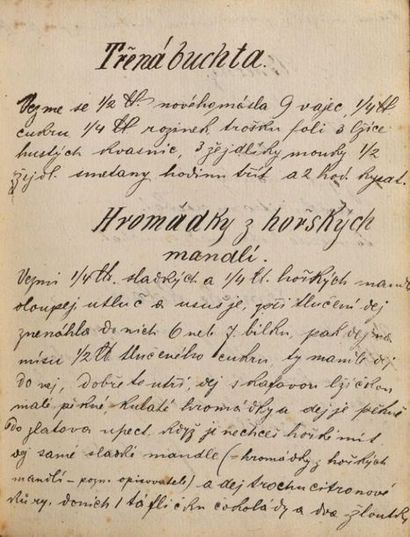 Třená buchta.
Vezme se 1/2 lb nového másla 9 vajec, 1/4 lb
cukru 1/4 lb rozinek, trošku soli 3 lžíce
hustých kvasnic, 3 žejdlíky mouky 1/2
žejdl. smetany hodinu třít a 2 hod. kysat.
Hromádky z horských
mandlí.
Vezmi 1/4 lb. sladkých a 1/4 lb. hořkých mandlí
oloupej utluč a usuš je, při tlučení dej
znenáhla do nich 6 neb 7 bílků, pak dej na
mísu 1/2 lb tlučeného cukru, ty mandle dej
do něj, dobře to utři, dej s kafovou lžičkou
malé, pěkné kulaté hromádky a dej je pěkně
do zlatova upect. Když je nechceš hořké mít
dej samé sladké mandle (= hromádky z hořkých
mandlí – pozn. opisovatele) a dej trochu citronové
kůry, do nich 1 tafličku čokolády a dva žloutky